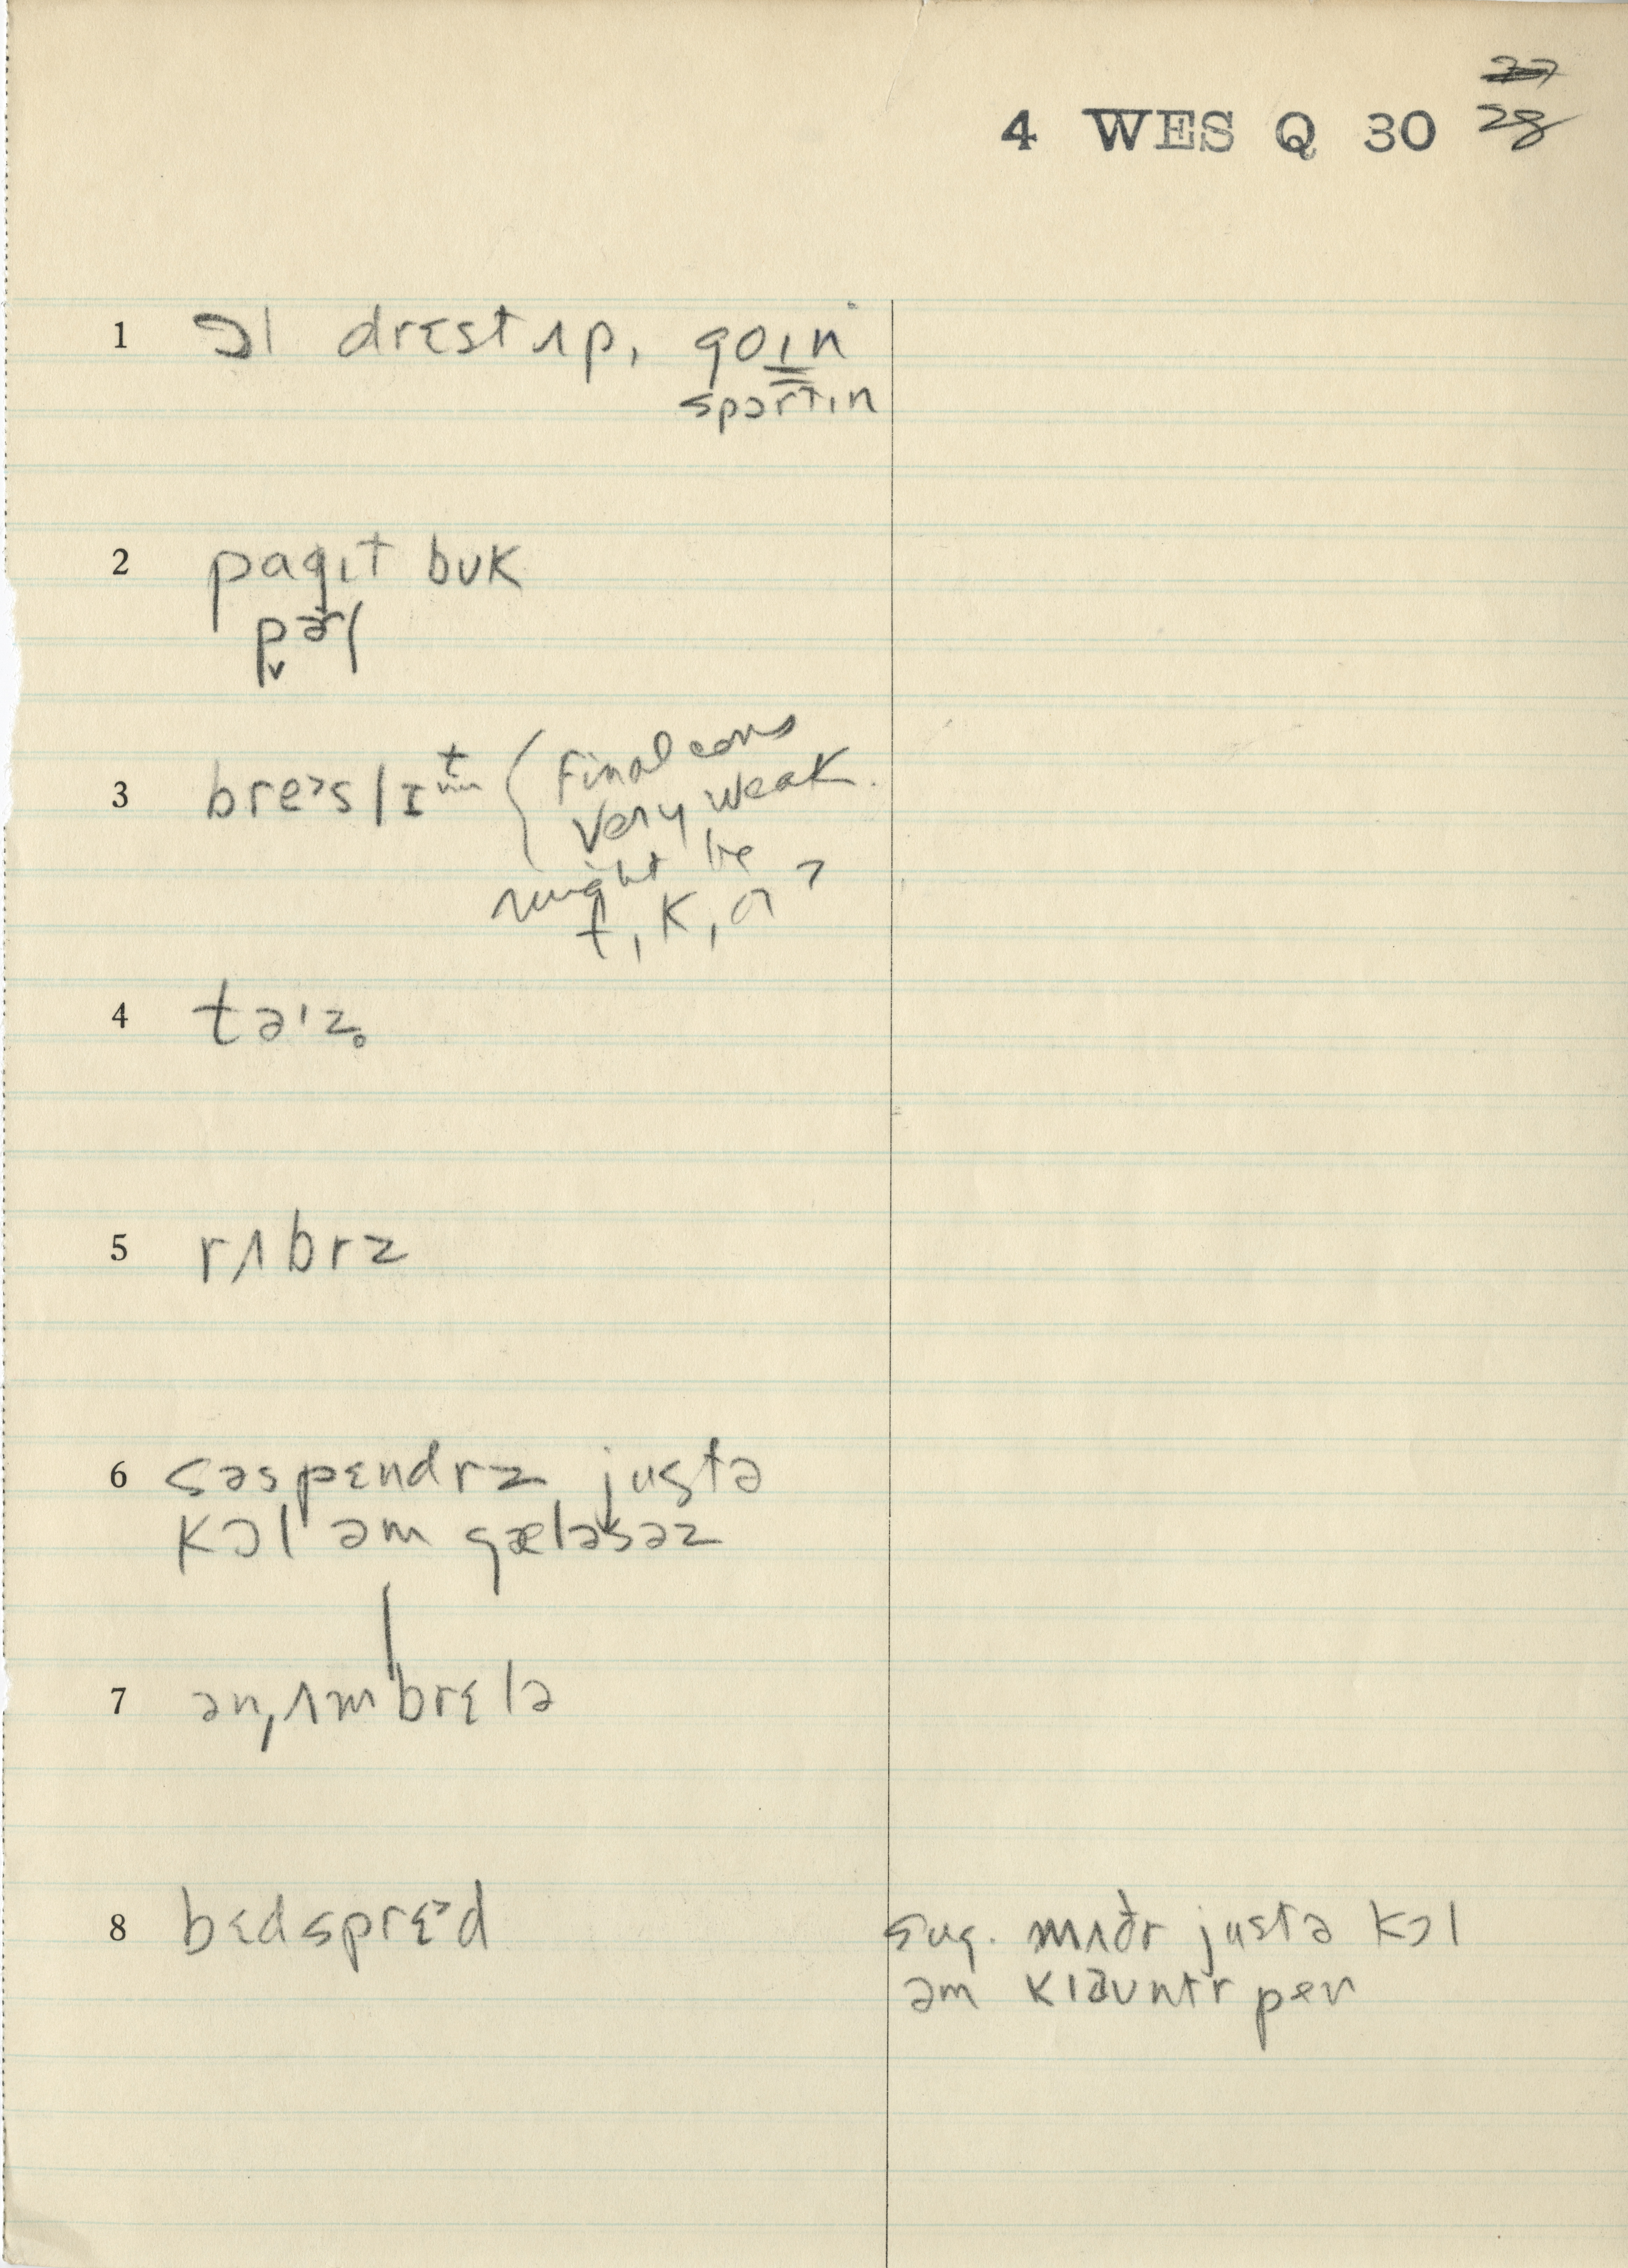 28
4 WES Q 30
1 ɔl drɛst ʌp, goɪn
sportɪn
2 pagɪt buk
3 breˀslɪt { final cons
very weak.
might be
t, k, or ?
4 təɪz̥
5 rʌbrz
6 səspɛndrz justə
kɔl əm gæləsəz
7 ən ʌmbrɛlə
8 bɛdsprɛˀd
sug. mʌðr justə kɔl
əm klauntr pen